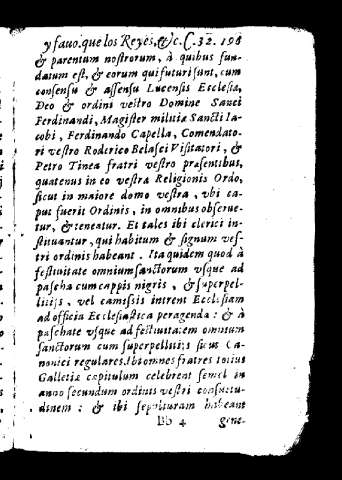 y fauo.que los Reyes,&c.C.32. 198
& parentum nostrorum, à quibus fun-
datum est, & eorum qui futuri sunt, cum
consensu & assensu Lucensis Ecclesiæ,
Deo & ordini vestro Domine Sanci
Ferdinandi, Magister militiæ Sancti Ia-
cobi, Ferdinando Capella, Comendato-
ri vestro Roderico Belasci Visitatori, &
Petro Tinea fratri vestro præsentibus,
quatenus in eo vestra Religionis Ordo,
sicut in maiore domo vestra, vbi ca-
put fuerit Ordinis, in omnibus obserue-
tur, & teneatur. Et tales ibi clerici in-
stituantur, qui habitum & signum ves-
tri ordinis habeant. Ita quidem quod à
festiuitate omnium sanctorum vsque ad
pascha cum cappis nigris, & superpel-
litijs, vel camissis intrent Ecclesiam
ad officia Ecclesiastica peragenda: & à
paschate vsque ad festiuitatem omnium
sanctorum cum superpellitijs sicut Ca-
nonici regulares. Ibi omnes fratres totius
Galletiæ capitulum celebrent semel in
anno secundum ordinis vestri consuetu-
dinem: & ibi sepulturam habeant
Bb 4 gene-